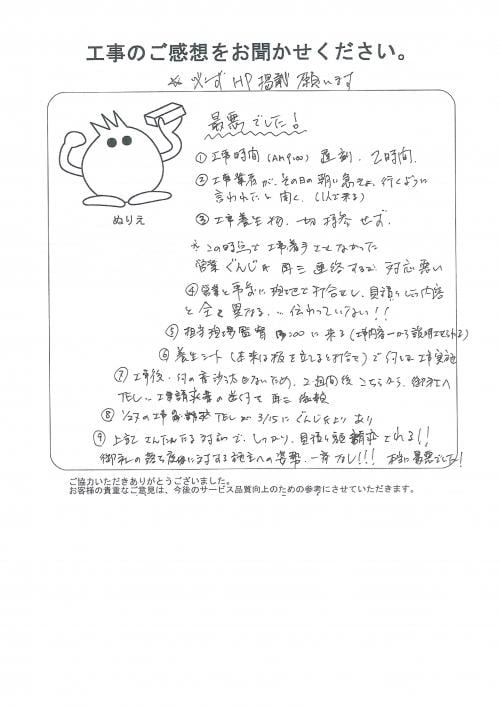 工事のご感想をお聞かせください。
※ 必ず HP 掲載 願います
最悪でした!
① 工事時間 (AM9:00) 遅刻. 2時間.
② 工事業者が、その日の朝に急きょ、行くように
言われたと聞く。(1人で来る)
③ 工事養生物. 一切 持参 せず.
※ この時点で 工事着手させなかった
営業 ぐんじ氏 再三 連絡するが 対応悪い
④ 営業と事前に現地で打合せし、見積りした内容
と 全て異なる. … 伝わっていない!!
⑤ 担当現場監督 PM 2:00 に来る (工事内容一から説明させられる)
⑥ 養生シート (本来は板を立てると打合せ) で何とか工事実施
⑦ 工事後. 何の音沙汰もないため、2週間後こちらから、御社へ
TELし、工事請求書の送付で再三依頼
⑧ 1/27の工事 TELが 3/15にぐんじ氏より あり
⑨ 上記 さんたんたる対応で、しっかり、見積り額請求される!!
御社の に対する施主への姿勢. 一番なし!!! 本当に最悪でした!
ぬりえ
ご協力いただきありがとうございました。
お客様の貴重なご意見は、今後のサービス品質向上のための参考にさせていただきます。